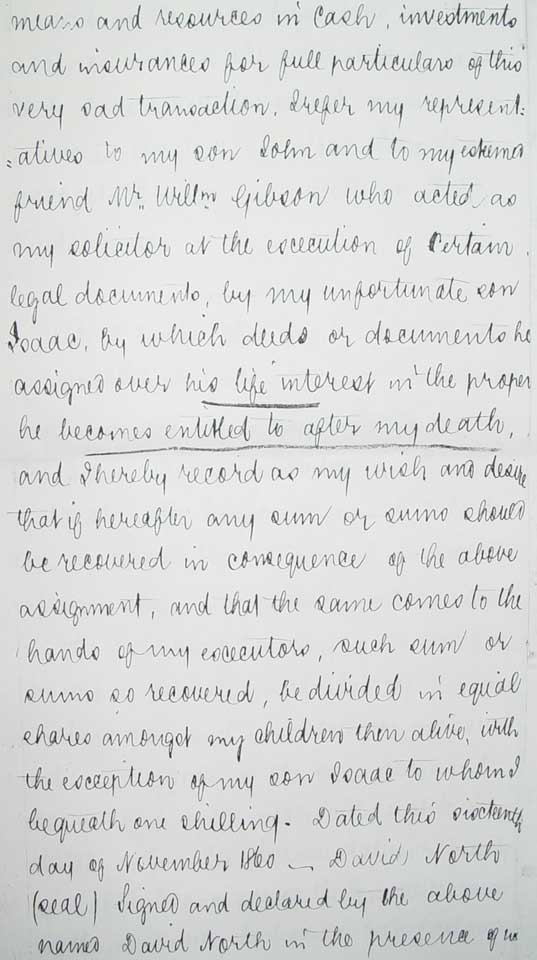 means and resources in Cash, investments
and insurances for full particulars of this
very sad transaction, I refer my represent:
:atives to my son John and to my esteemed
friend Mr. Willm Gibson who acted as
my solicitor at the execution of Certain
legal documents, by my unfortunate son
Isaac, by which deeds or documents he
assigned over his life interest in the proper
he becomes entitled to after my death,
and I hereby record as my wish and desire
that if hereafter any sum or sums should
be recovered in consequence of the above
assignment, and that the same comes to the
hands of my executors, such sum or
sums so recovered, be divided in equal
shares amongst my children then alive, with
the exception of my son Isaac to whom I
bequeath one shilling. Dated this sixteenth
day of November 1860 — David North
(seal) Signed and declared by the above
named David North in the presence of us